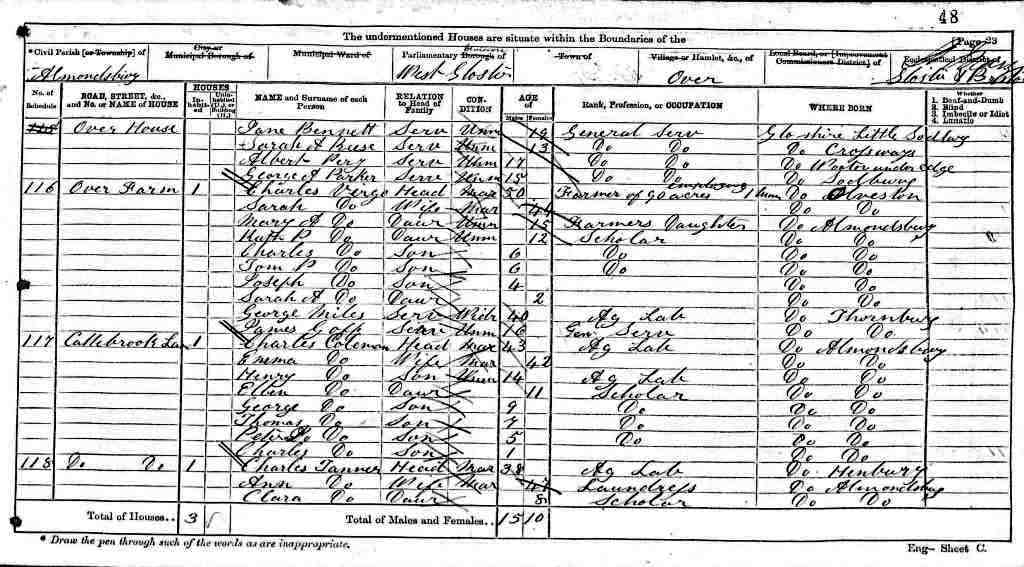 48
The undermentioned Houses are situate within the Boundaries of the
[Page 23
*Civil Parish [or Township] of City or Municipal Borough of Municipal Ward of Parliamentary Borough of Town of Village or Hamlet, &c., of Local Board, or [Improvement Commissioners District] of Ecclesiastical District of
Almondsbury West Gloster Over
No. of Schedule ROAD, STREET, &c., and No. or NAME of HOUSE HOUSES Inhabited Uninhabited (U.), or Building (B.) NAME and Surname of each Person RELATION to Head of Family CONDITION AGE of Males Females Rank, Profession, or OCCUPATION WHERE BORN Whether 1. Deaf-and-Dumb 2. Blind 3. Imbecile or Idiot 4. Lunatic
115 Over House Jane Bennett Serv Unm 19 General Serv Glo shire Little Sodbug
Sarah A Reese Serv Unm 13 Do Do Do Crofsways
Albert Pery Serv Unm 17 Do Do Do Wooton under edge
George A Parker Serv Unm 15 Do Do Do Sodbury
116 Over Farm 1 Charles Vergo Head Mar 50 Farmer of 90 acres Employing 1 man Do Olveston
Sarah Do Wife Mar 44 Do Do
Mary A Do Dawr Unm 15 Farmers Daughter Do Almondsbury
Ruth P Do Dawr Unm 12 Scholar Do Do
Charles Do Son 6 Do Do Do
Tom P Do Son 6 Do Do Do
Joseph Do Son 4 Do Do
Sarah A Do Dawr 2 Do Do
George Miles Serv Widr 40 Ag Lab Do Thornbury
James Goff Serv Unm 16 Gen Serv Do Do
117 Cattebrook Lan 1 Charles Coleman Head Mar 43 Ag Lab Do Almondsbury
Emma Do Wife Mar 42 Do Do
Henry Do Son Unm 14 Ag Lab Do Do
Ellen Do Dawr 11 Scholar Do Do
George Do Son 9 Do Do Do
Thomas Do Son 7 Do Do Do
Peter Do Son 5 Do Do Do
Charles Do Son 1 Do Do
118 Do Do 1 Charles Tanner Head Mar 38 Ag Lab Do Henbury
Ann Do Wife Mar 47 Laundrefs Do Almondsbug
Clara Do Dawr 8 Scholar Do Do
Total of Houses.. 3 Total of Males and Females.. 15 10
* Draw the pen through such of the words as are inappropriate.
Eng- Sheet C.